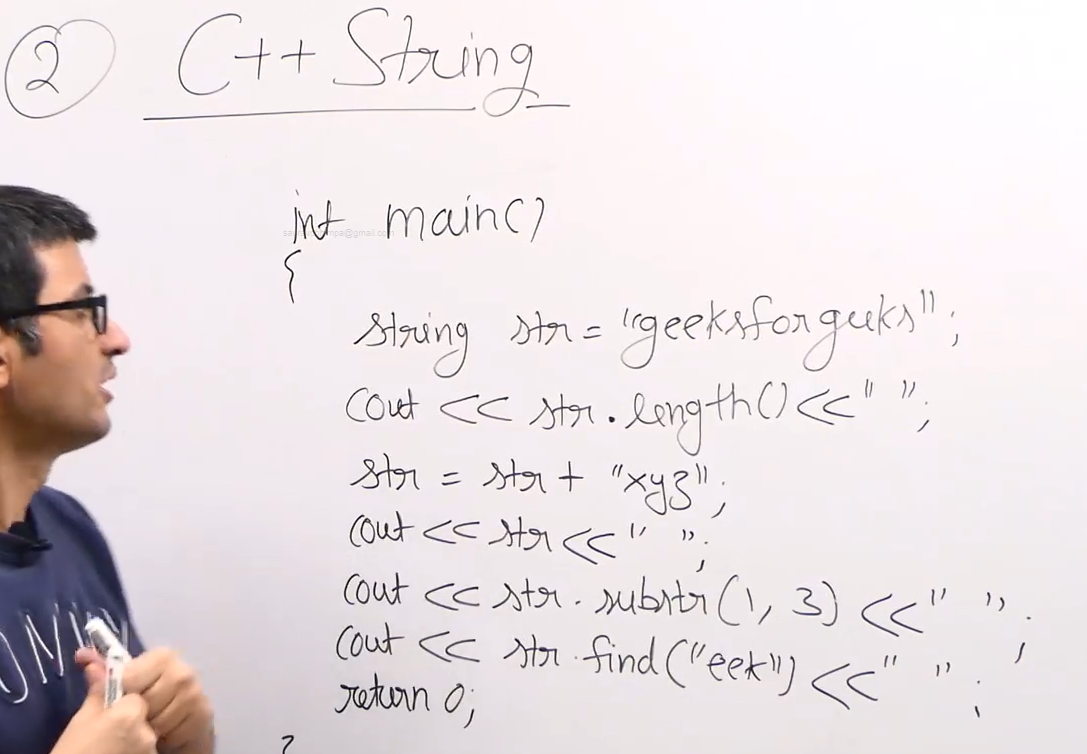 2 C++ String
int main()
{
string str = "geeksforgeeks";
cout << str.length() << " ";
str = str + "xyz";
cout << str << " ";
cout << str.substr(1, 3) << " ";
cout << str.find("eek") << " ";
return 0;